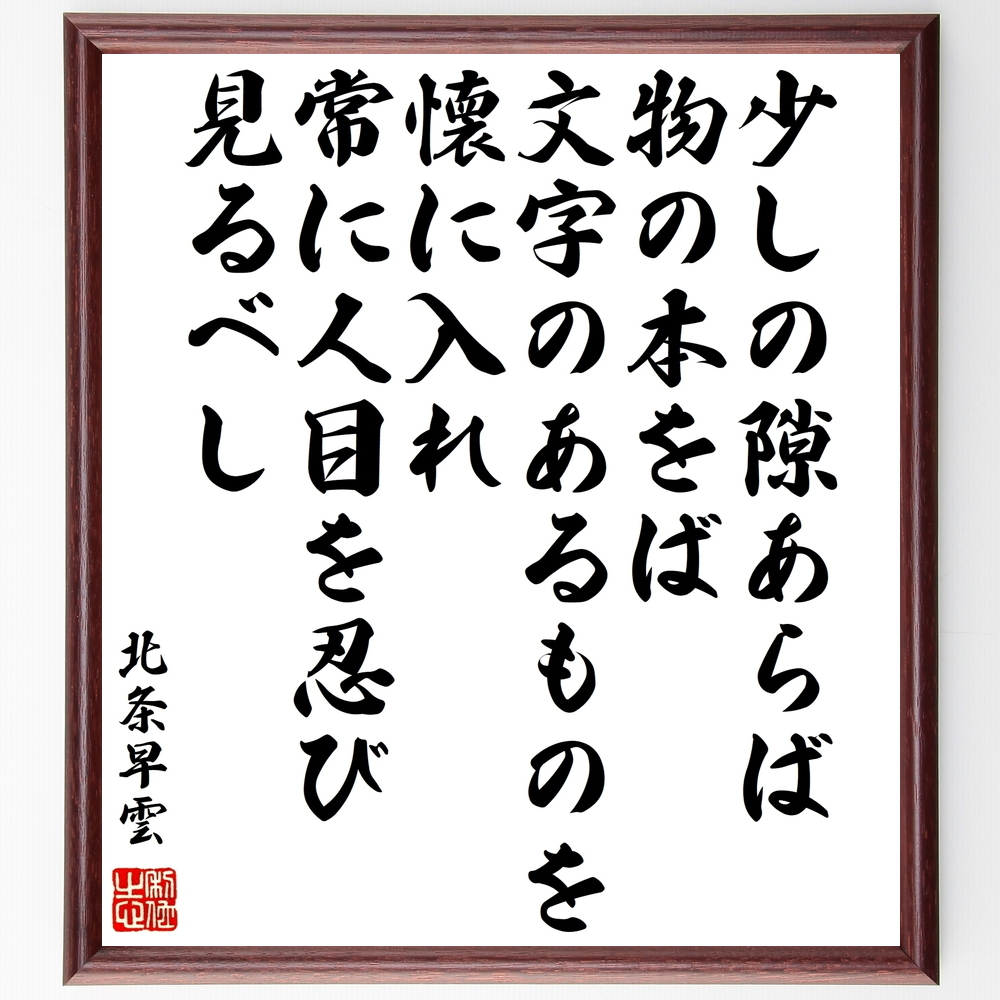 少しの隙あらば
物の本をば
文字のあるものを
懐に入れ
常に人目を忍び
見るべし
北条早雲